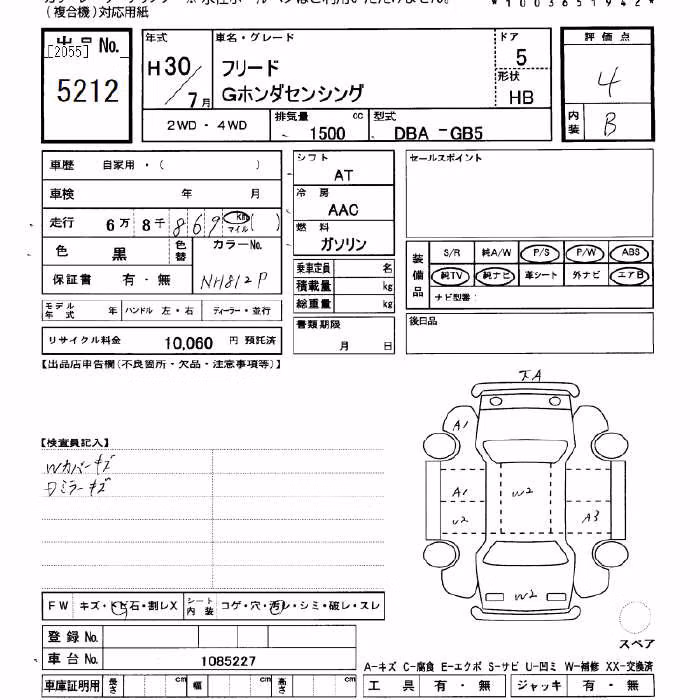 (複合機)対応用紙
*1003651942*
出品No.
[2055]
5212
年式
H30/7月
車名・グレード
フリード
Gホンダセンシング
ドア
5
形状
HB
2WD・4WD
排気量
1500 cc
型式
DBA -GB5
評価点
4
内装
B
車歴 自家用・( )
車検 年 月
走行 6万 8千 869 Km マイル ( )
色 黒 色替 カラーNo.
NH812P
保証書 有・無
モデル年式 年 ハンドル 左・右 ディーラー・並行
リサイクル料金 10,060 円 預託済
シフト
AT
冷房
AAC
燃料
ガソリン
乗車定員 名
積載量 kg
総重量 kg
書類期限
月 日
セールスポイント
装備品
S/R 純A/W P/S P/W ABS
純TV 純ナビ 革シート 外ナビ エアB
ナビ型番:
後日品
【出品店申告欄(不良箇所・欠品・注意事項等)】
【検査員記入】
Wカバーキズ
Dミラーキズ
A1
A1
U2
W2
A3
W2
スペア
FW キズ・トビ石・割レX シート内装 コゲ・穴・汚レ・シミ・破レ・スレ
登録No.
車台No. 1085227
車庫証明用 長さ cm 幅 cm 高さ cm
A-キズ C-腐食 E-エクボ S-サビ U-凹ミ W-補修 XX-交換済
工具 有・無 ジャッキ 有・無